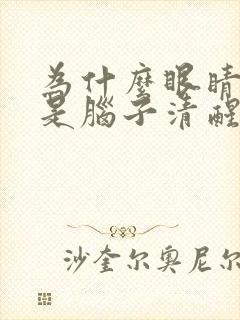 為什麼眼睛
是腦子清醒
沙奎尔奥尼尔